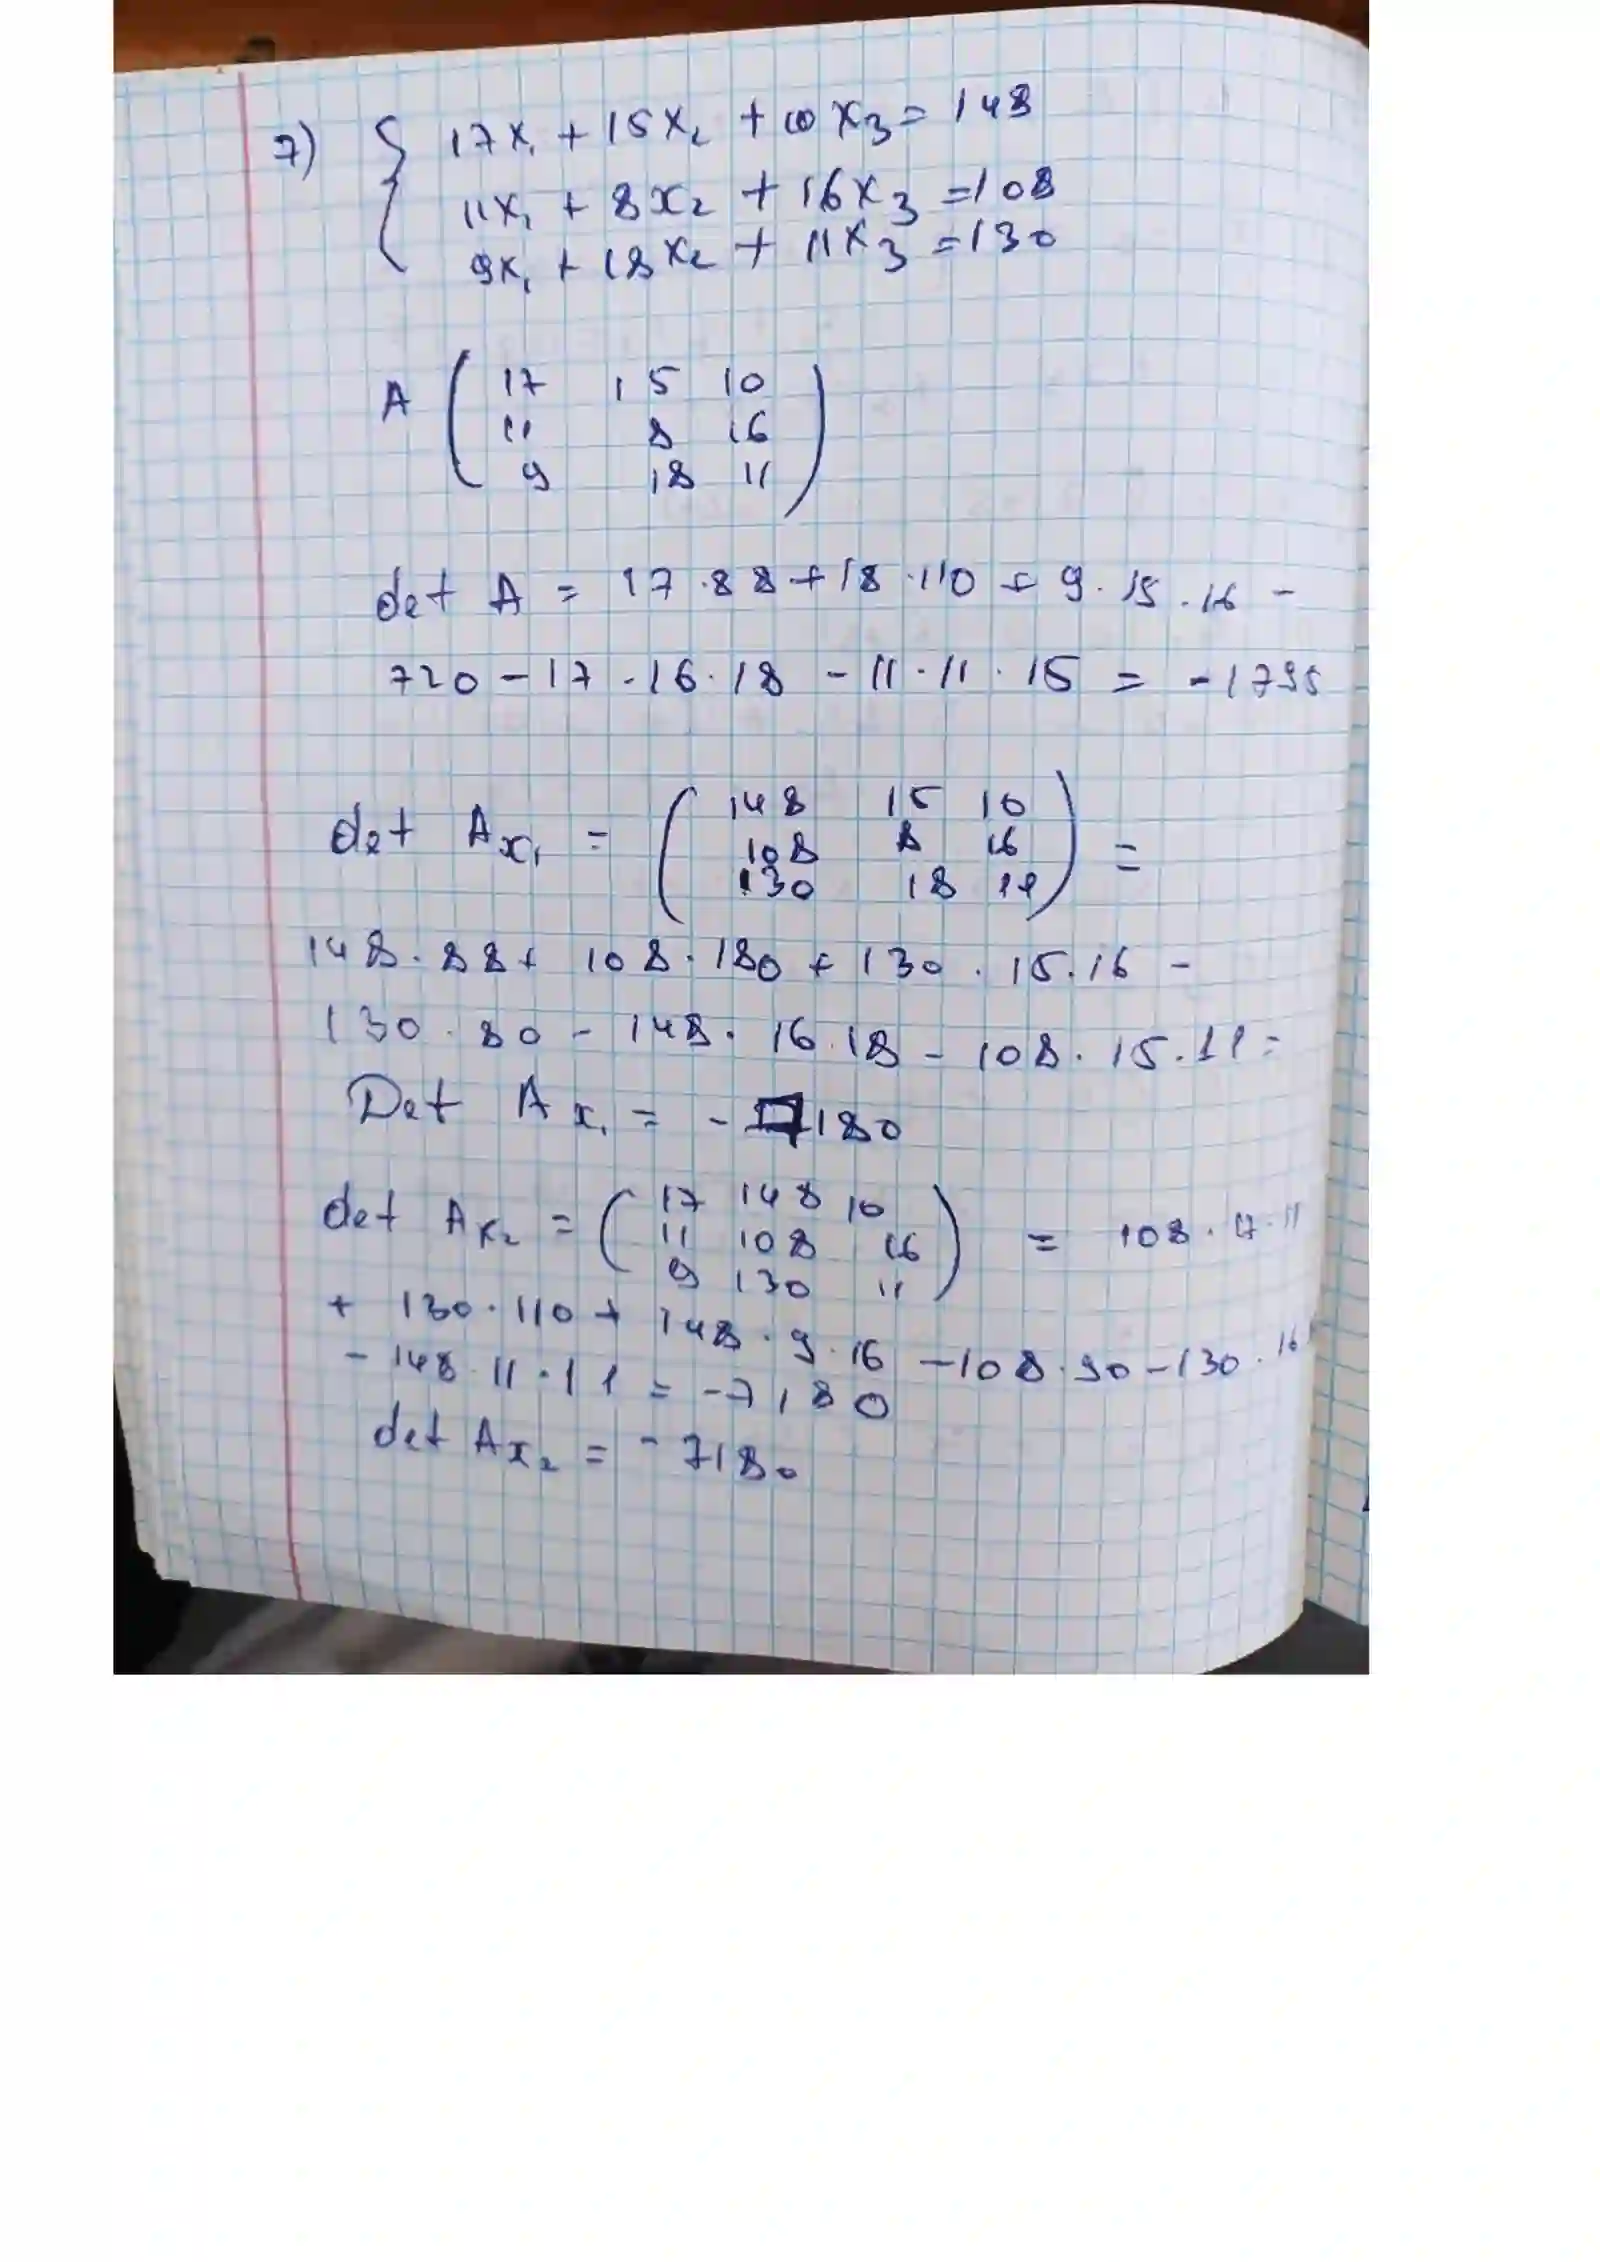 7) { 17x₁ + 15x₂ + 10x₃ = 148
11x₁ + 8x₂ + 16x₃ = 108
9x₁ + 18x₂ + 11x₃ = 130
A ( 17 15 10
11 8 16
9 18 11 )
det A = 17·88 + 18·110 + 9·15·16 -
720 - 17·16·18 - 11·11·15 = -1795
det Ax₁ = ( 148 15 10
108 8 16 ) =
130 18 11
148·88 + 108·180 + 130·15·16 -
130·80 - 148·16·18 - 108·15·11 =
Det Ax₁ = - 7180
det Ax₂ = ( 17 148 10
11 108 16 ) = 108·17·11
9 130 11
+ 130·110 + 148·9·16 - 108·90 - 130·16
- 148·11·11 = -7180
det Ax₂ = -7180